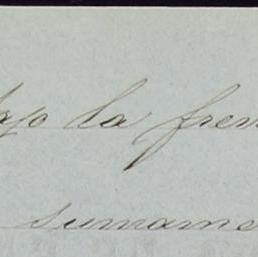 bajo la fren
sumame